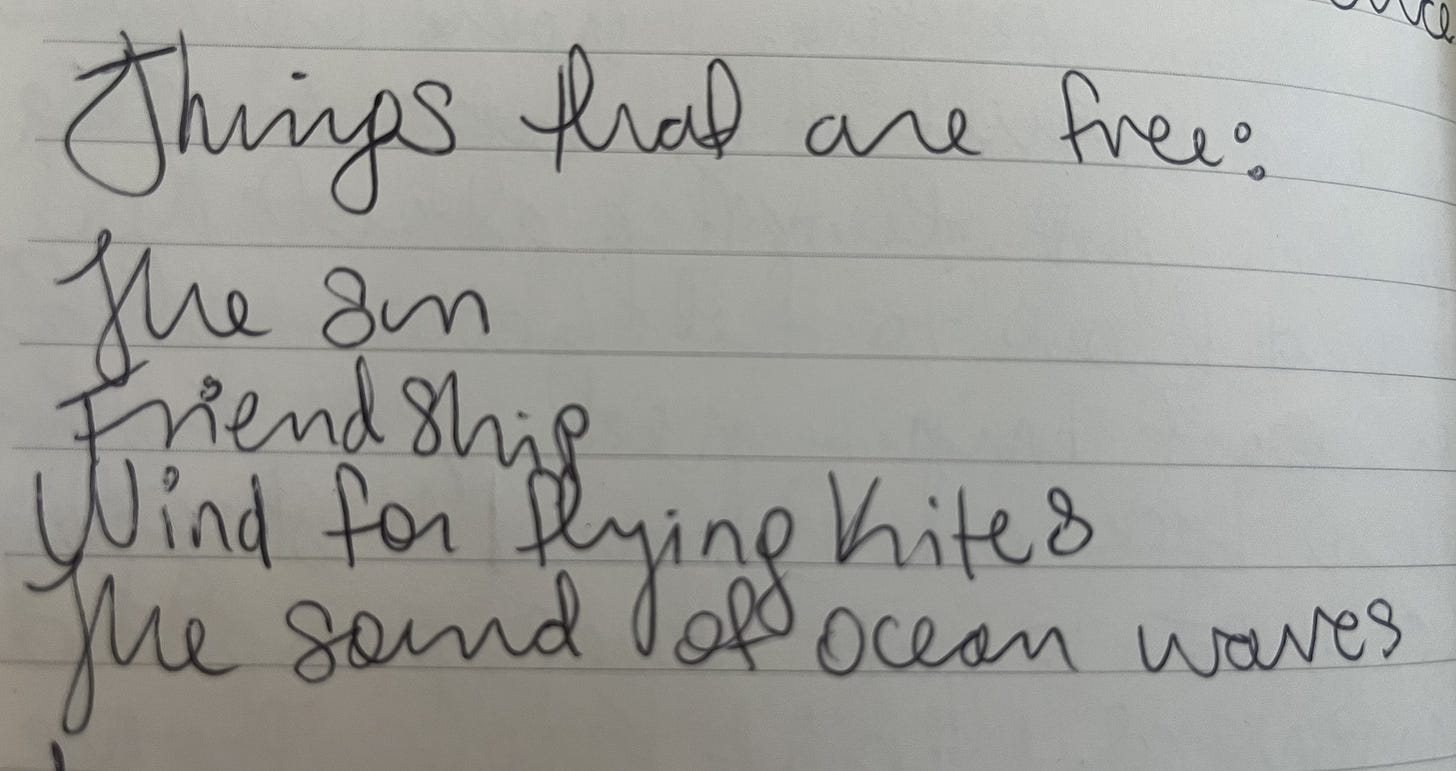 Things that are free:
The sun
Friendship
Wind for flying kites
The sound of ocean waves